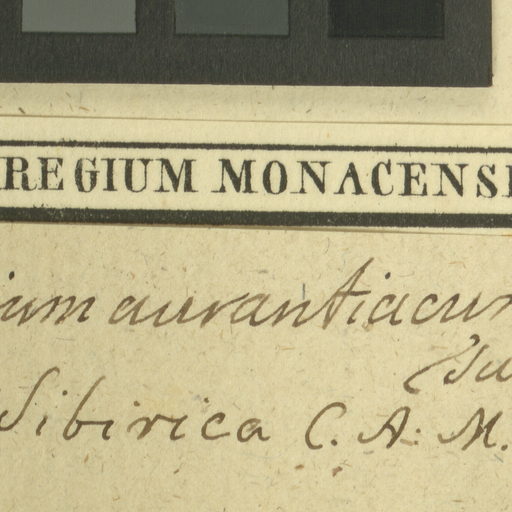 REGIUM MONACENSE
ium aurantiacum
Sibirica C. A. M.